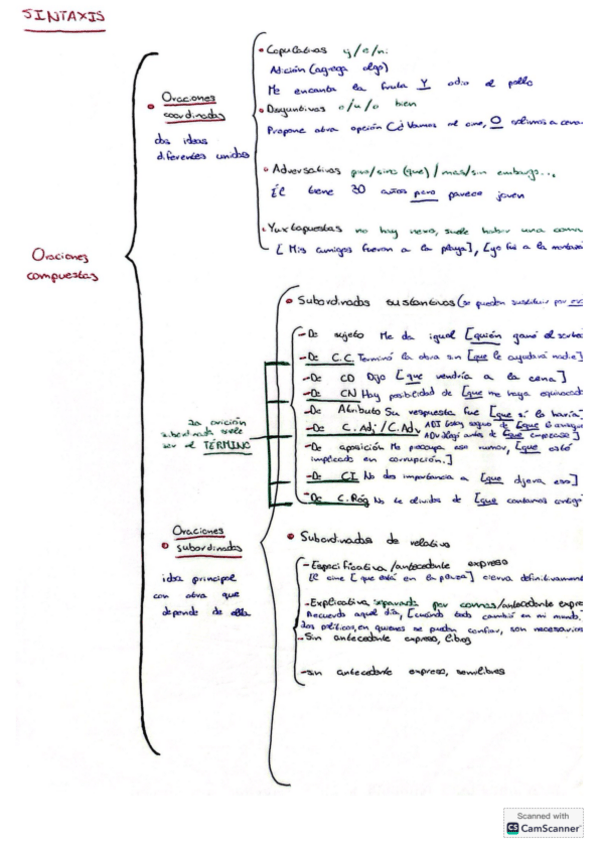 SINTAXIS
Oraciones
compuestas
• Oraciones
coordinadas
dos ideas
diferentes unidas
• Copulativas y/e/ni
Adición (agrega algo)
Me encanta la fruta Y odio el pollo
• Disyuntivas o/u/o bien
Propone otra opción Vamos al cine, O salimos a cenar
• Adversativas pero/sino (que)/mas/sin embargo...
Él tiene 30 años pero parece joven
• Yuxtapuestas no hay nexo, suele haber una com
[Mis amigos fueron a la playa], [yo fui a la montaña
• Oraciones
subordinadas
idea principal
con otra que
depende de ella
la oración
subordinada suele
ser el TÉRMINO
• Subordinadas sustantivas (se pueden sustituir por
- De sujeto Me da igual [quién ganó el sorteo
- De C.C. Terminó la obra sin [que le ayudara nadie]
- De CD Dijo [que vendría a la cena]
- De CN Hay posibilidad de [que me haya equivocado
- De Atributo Su respuesta fue [que sí lo haría]
- De C.Adj/C.Adv ADJ Estoy seguro de [que
ADV llegó antes de [que empezase]
- De aposición Me preocupa ese rumor, [que esté
implicado en corrupción.]
- De CI No dio importancia a [que dijera eso]
- De C.Rég No te olvides de [que contamos contigo
• Subordinadas de relativo
- Especificativa/antecedente expreso
El cine [que está en la plaza] cierra definitivament
- Explicativa separada por comas/antecedente expre
Recuerdo aquel día, [cuando todo cambió en mi mundo.
Los políticos, en quienes se puedan confiar, son necesarios
- Sin antecedente expreso, libres
- sin antecedente expreso, semilibres
Scanned with
CS CamScanner